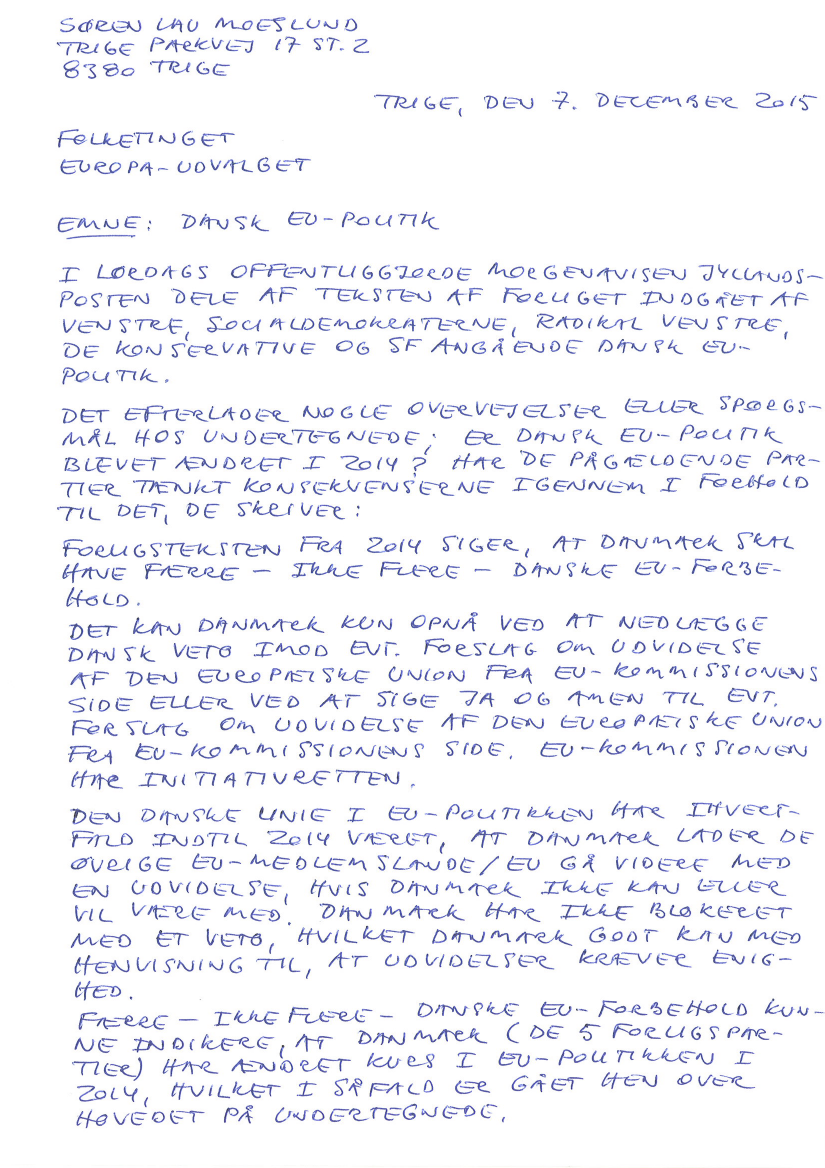 SØREN LAU MOESLUND
TRIGE PARKVEJ 17 ST. 2
8380 TRIGE
TRIGE, DEN 7. DECEMBER 2015
FOLKETINGET
EUROPA-UDVALGET
EMNE: DANSK EU-POLITIK
I LØRDAGS OFFENTLIGGJORDE MORGENAVISEN JYLLANDS-
POSTEN DELE AF TEKSTEN AF FORLIGET INDGÅET AF
VENSTRE, SOCIALDEMOKRATERNE, RADIKAL VENSTRE,
DE KONSERVATIVE OG SF ANGÅENDE DANSK EU-
POLITIK.
DET EFTERLADER NOGLE OVERVEJELSER ELLER SPØRGS-
MÅL HOS UNDERTEGNEDE; ER DANSK EU-POLITIK
BLEVET ÆNDRET I 2014? HAR DE PÅGÆLDENDE PAR-
TIER TÆNKT KONSEKVENSERNE IGENNEM I FORHOLD
TIL DET, DE SKRIVER:
FORLIGSTEKSTEN FRA 2014 SIGER, AT DANMARK SKAL
HAVE FÆRRE - IKKE FLERE - DANSKE EU-FORBE-
HOLD.
DET KAN DANMARK KUN OPNÅ VED AT NEDLÆGGE
DANSK VETO IMOD EVT. FORSLAG OM UDVIDELSE
AF DEN EUROPÆISKE UNION FRA EU-KOMMISSIONENS
SIDE ELLER VED AT SIGE JA OG AMEN TIL EVT.
FORSLAG OM UDVIDELSE AF DEN EUROPÆISKE UNION
FRA EU-KOMMISSIONENS SIDE. EU-KOMMISSIONEN
HAR INITIATIVRETTEN.
DEN DANSKE LINIE I EU-POLITIKKEN HAR IHVERT-
FALD INDTIL 2014 VÆRET, AT DANMARK LADER DE
ØVRIGE EU-MEDLEMSLANDE/EU GÅ VIDERE MED
EN UDVIDELSE, HVIS DANMARK IKKE KAN ELLER
VIL VÆRE MED. DANMARK HAR IKKE BLOKERET
MED ET VETO, HVILKET DANMARK GODT KAN MED
HENVISNING TIL, AT UDVIDELSER KRÆVER ENIG-
HED.
FÆRRE - IKKE FLERE - DANSKE EU-FORBEHOLD KUN-
NE INDIKERE, AT DANMARK (DE 5 FORLIGSPAR-
TIER) HAR ÆNDRET KURS I EU-POLITIKKEN I
2014, HVILKET I SÅFALD ER GÅET HEN OVER
HOVEDET PÅ UNDERTEGNEDE.